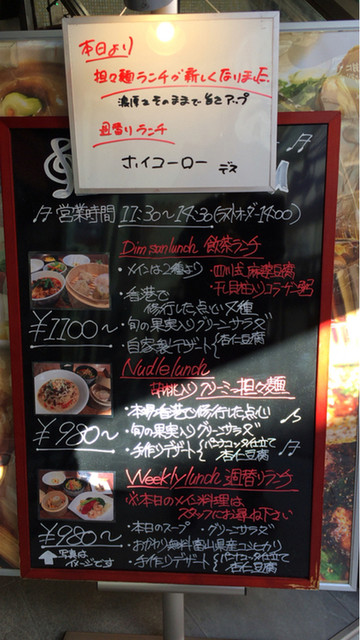 本日より
担々麺ランチが新しくなりました
濃厚さそのままで旨さアップ
週替りランチ
ホイコーロー デス
営業時間 11:30〜14:30(ラストオーダー14:00)
Dim sum lunch 飲茶ランチ
・メインは2種より
・四川式麻婆豆腐
・干貝柱入りコラーゲン粥
・香港で
修行した点心4種
・旬の果実入りグリーンサラダ
・自家製デザート
杏仁豆腐
¥1100〜
Nudle lunch
胡桃入りクリーミー担々麺
・本場香港で修行した点心
・旬の果実入りグリーンサラダ
・手作りデザート
パンナコッタ仕立て
杏仁豆腐
¥980〜
Weekly lunch 週替りランチ
※本日のメイン料理は
スタッフにお尋ね下さい
・本日のスープ ・グリーンサラダ
・おかわり無料富山県産コシヒカリ
・手作りデザート
パンナコッタ仕立て
杏仁豆腐
¥980〜
写真は
イメージです